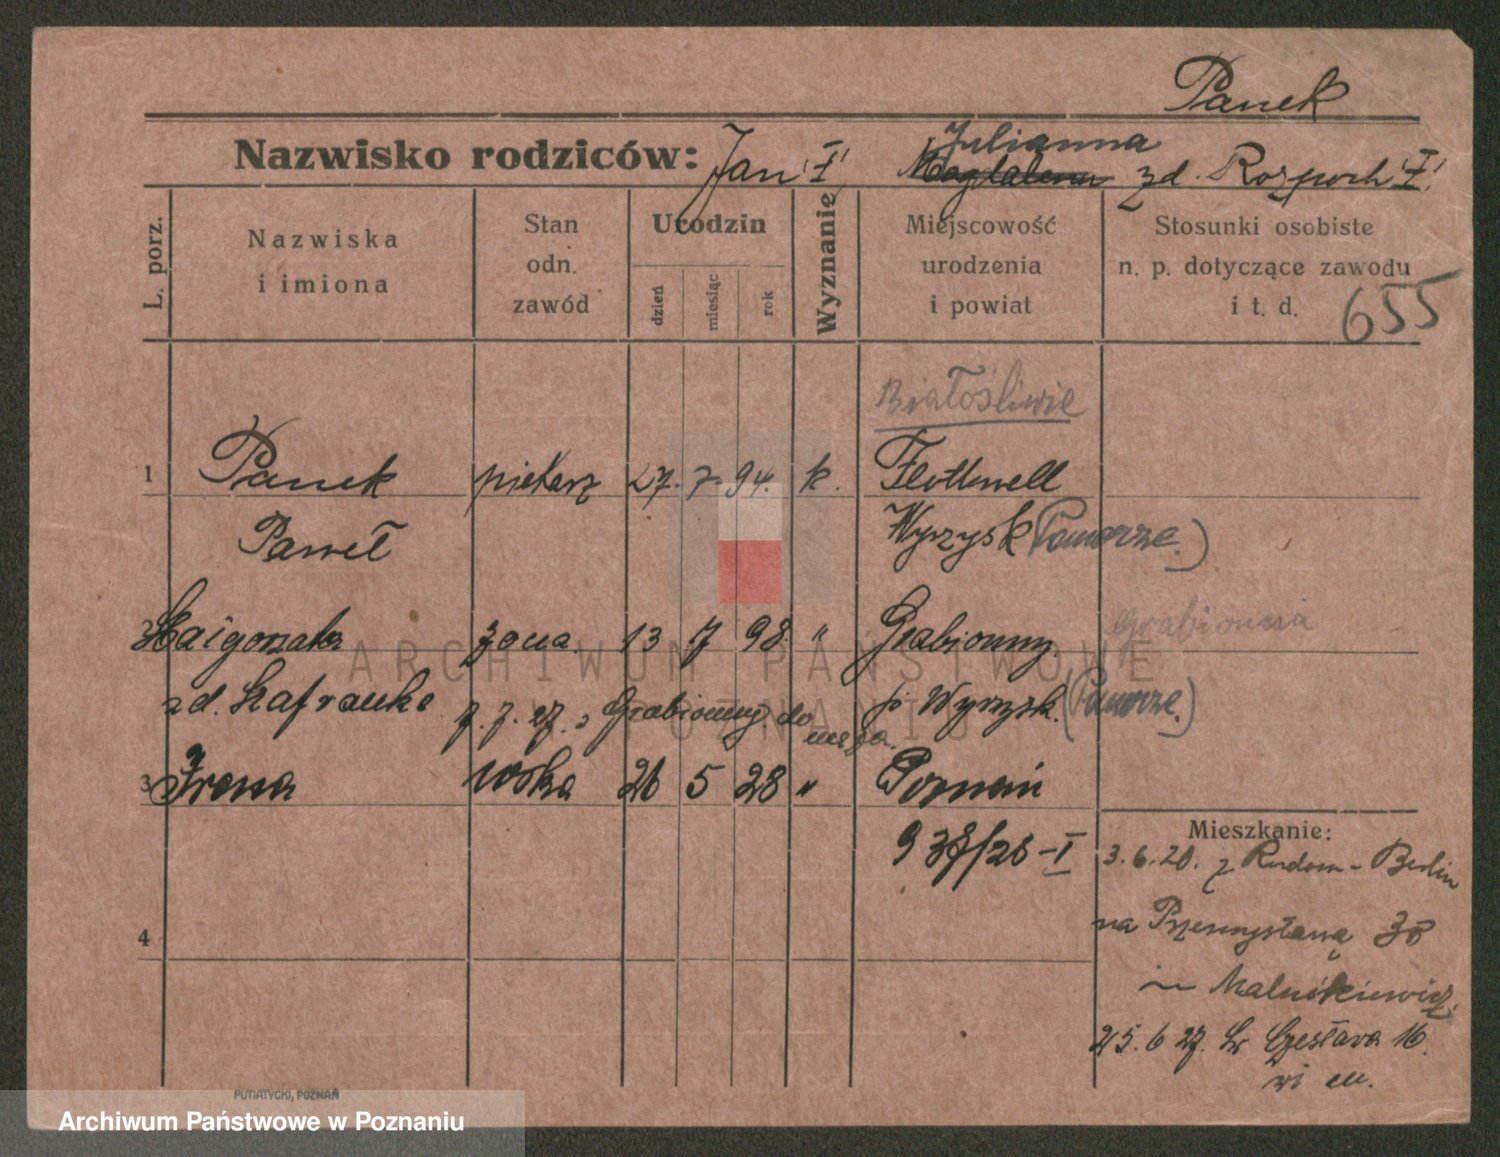 Panek
Nazwisko rodziców: Jan I Julianna
Magdalena zd. Rozpoch I
L. porz.
Nazwiska
i imiona
Stan
odn.
zawód
Urodzin
dzień
miesiąc
rok
Wyznanie
Miejscowość
urodzenia
i powiat
Stosunki osobiste
n. p. dotyczące zawodu
i t. d.
655
Białośliwie
1 Panek piekarz 27. 7. 94. k. Flottwell
Paweł Wyrzysk (Pomorze.)
2 Małgorzata żona 13 7 98. " Grabionny. Grabionna
zd. Szafranke p. Wyrzysk. (Pomorze.)
7. 7. 27. z Grabionny do
męża.
3 Irena córka 26 5 28 " Poznań
938/28-I
4
Mieszkanie:
3. 6. 20. z Radom - Berlin
na Przemysłową 38
Maluśkiewicz.
25. 6 27. Św Czesława 16.
wi m.
PUTIATYCKI, POZNAŃ
ARCHIWUM PAŃSTWOWE
W POZNANIU
Archiwum Państwowe w Poznaniu